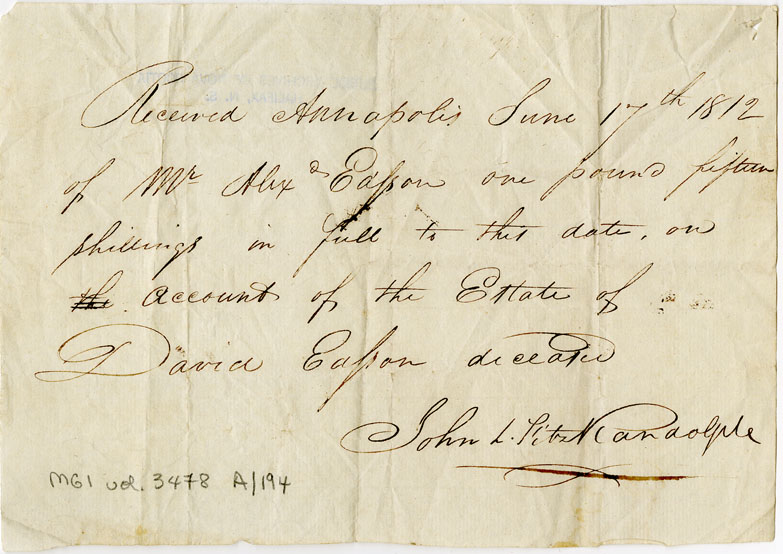 Received Annapolis June 17th 1812
of Mr Alexd Eaſson one pound fifteen
shillings in full to this date, on
the account of the Estate of
David Eaſson deceased
John L. FitzRandolph
MG1 vol. 3478 A/194